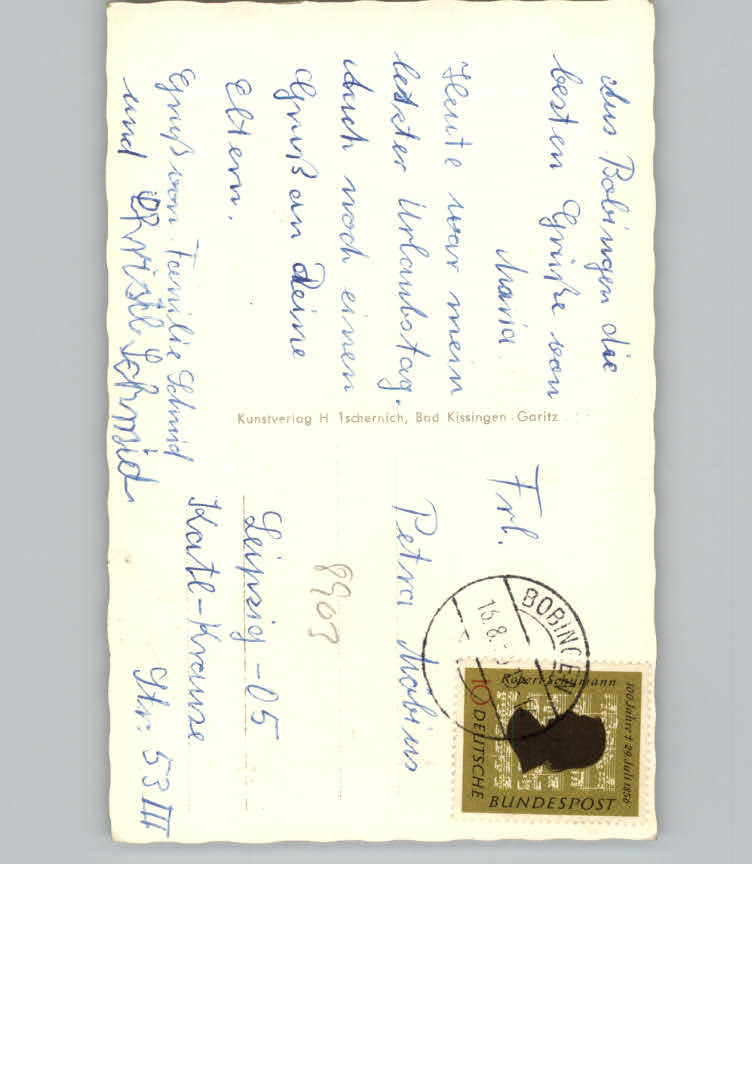 Aus Bobingen die
besten Grüße von
Maria.
Heute war mein
letzter Urlaubstag.
Auch noch einen
Gruß an Deine
Eltern.
Gruß von Familie Schmid
und Christl Schmid
Kunstverlag H Tschernich, Bad Kissingen-Garitz
Frl.
Petra Möbius
8903
Leipzig-05
Kätl-Krause
Str. 53 III
BOBINGEN
15.8.
Robert Schumann
100 Jahre † 29. Juli 1956
10
DEUTSCHE
BUNDESPOST